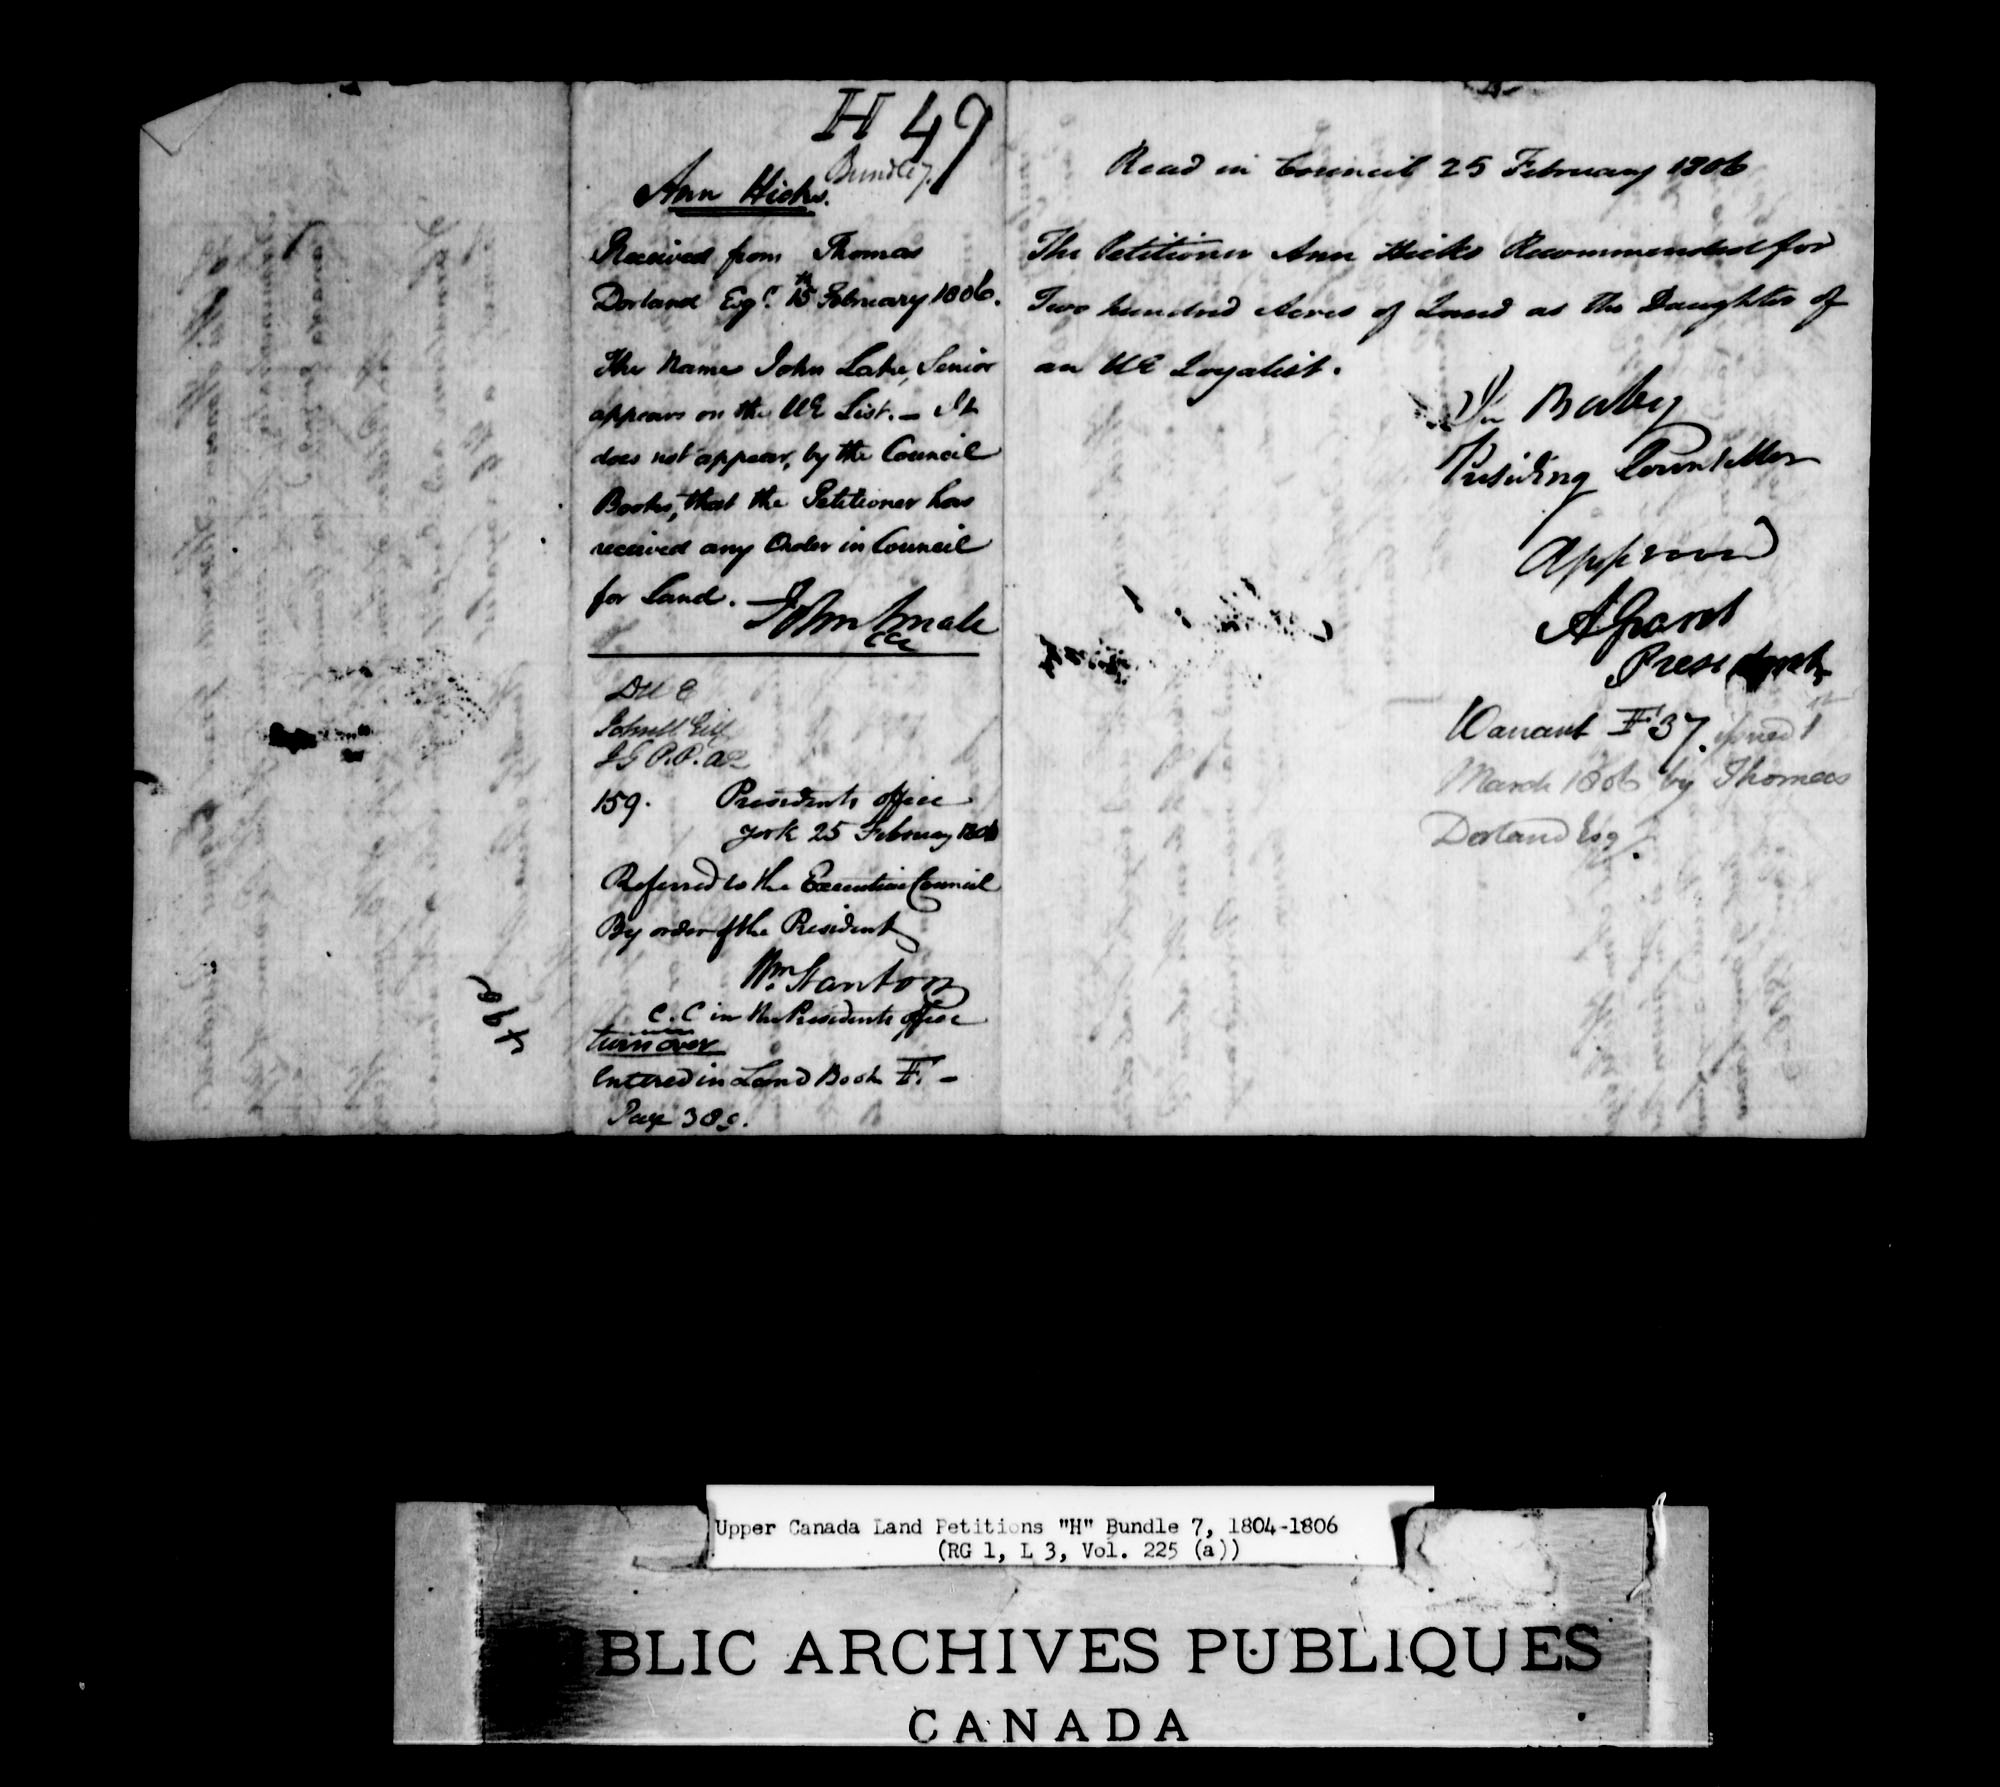 H 49
Bundle 7.
Ann Hicks.
Received from Thomas
Dorland Esqr. 15th February 1806.
The Name John Lake, Senior
appears on the UE List. – It
does not appear, by the Council
Books, that the Petitioner has
received any Order in Council
for Land. –
John Small
CEC
DUE
159.
Presidents office
york 25 February 1806
Referred to the Executive Council
By order of the President
Wm Stanton
C.C in the Presidents office
turn over
Entered in Land Book F. –
Page 389.
Read in Council 25 February 1806
The Petitioner Ann Hicks Recommended for
Two hundred Acres of Land as the Daughter of
an UE Loyalist.
Baby
Presiding Councillor
Approved
A Grant
President
Warrant F 37. issued 1st
March 1806 by Thomas
Dorland Esqr.
Upper Canada Land Petitions "H" Bundle 7, 1804-1806
(RG 1, L 3, Vol. 225 (a))
BLIC ARCHIVES PUBLIQUES
CANADA